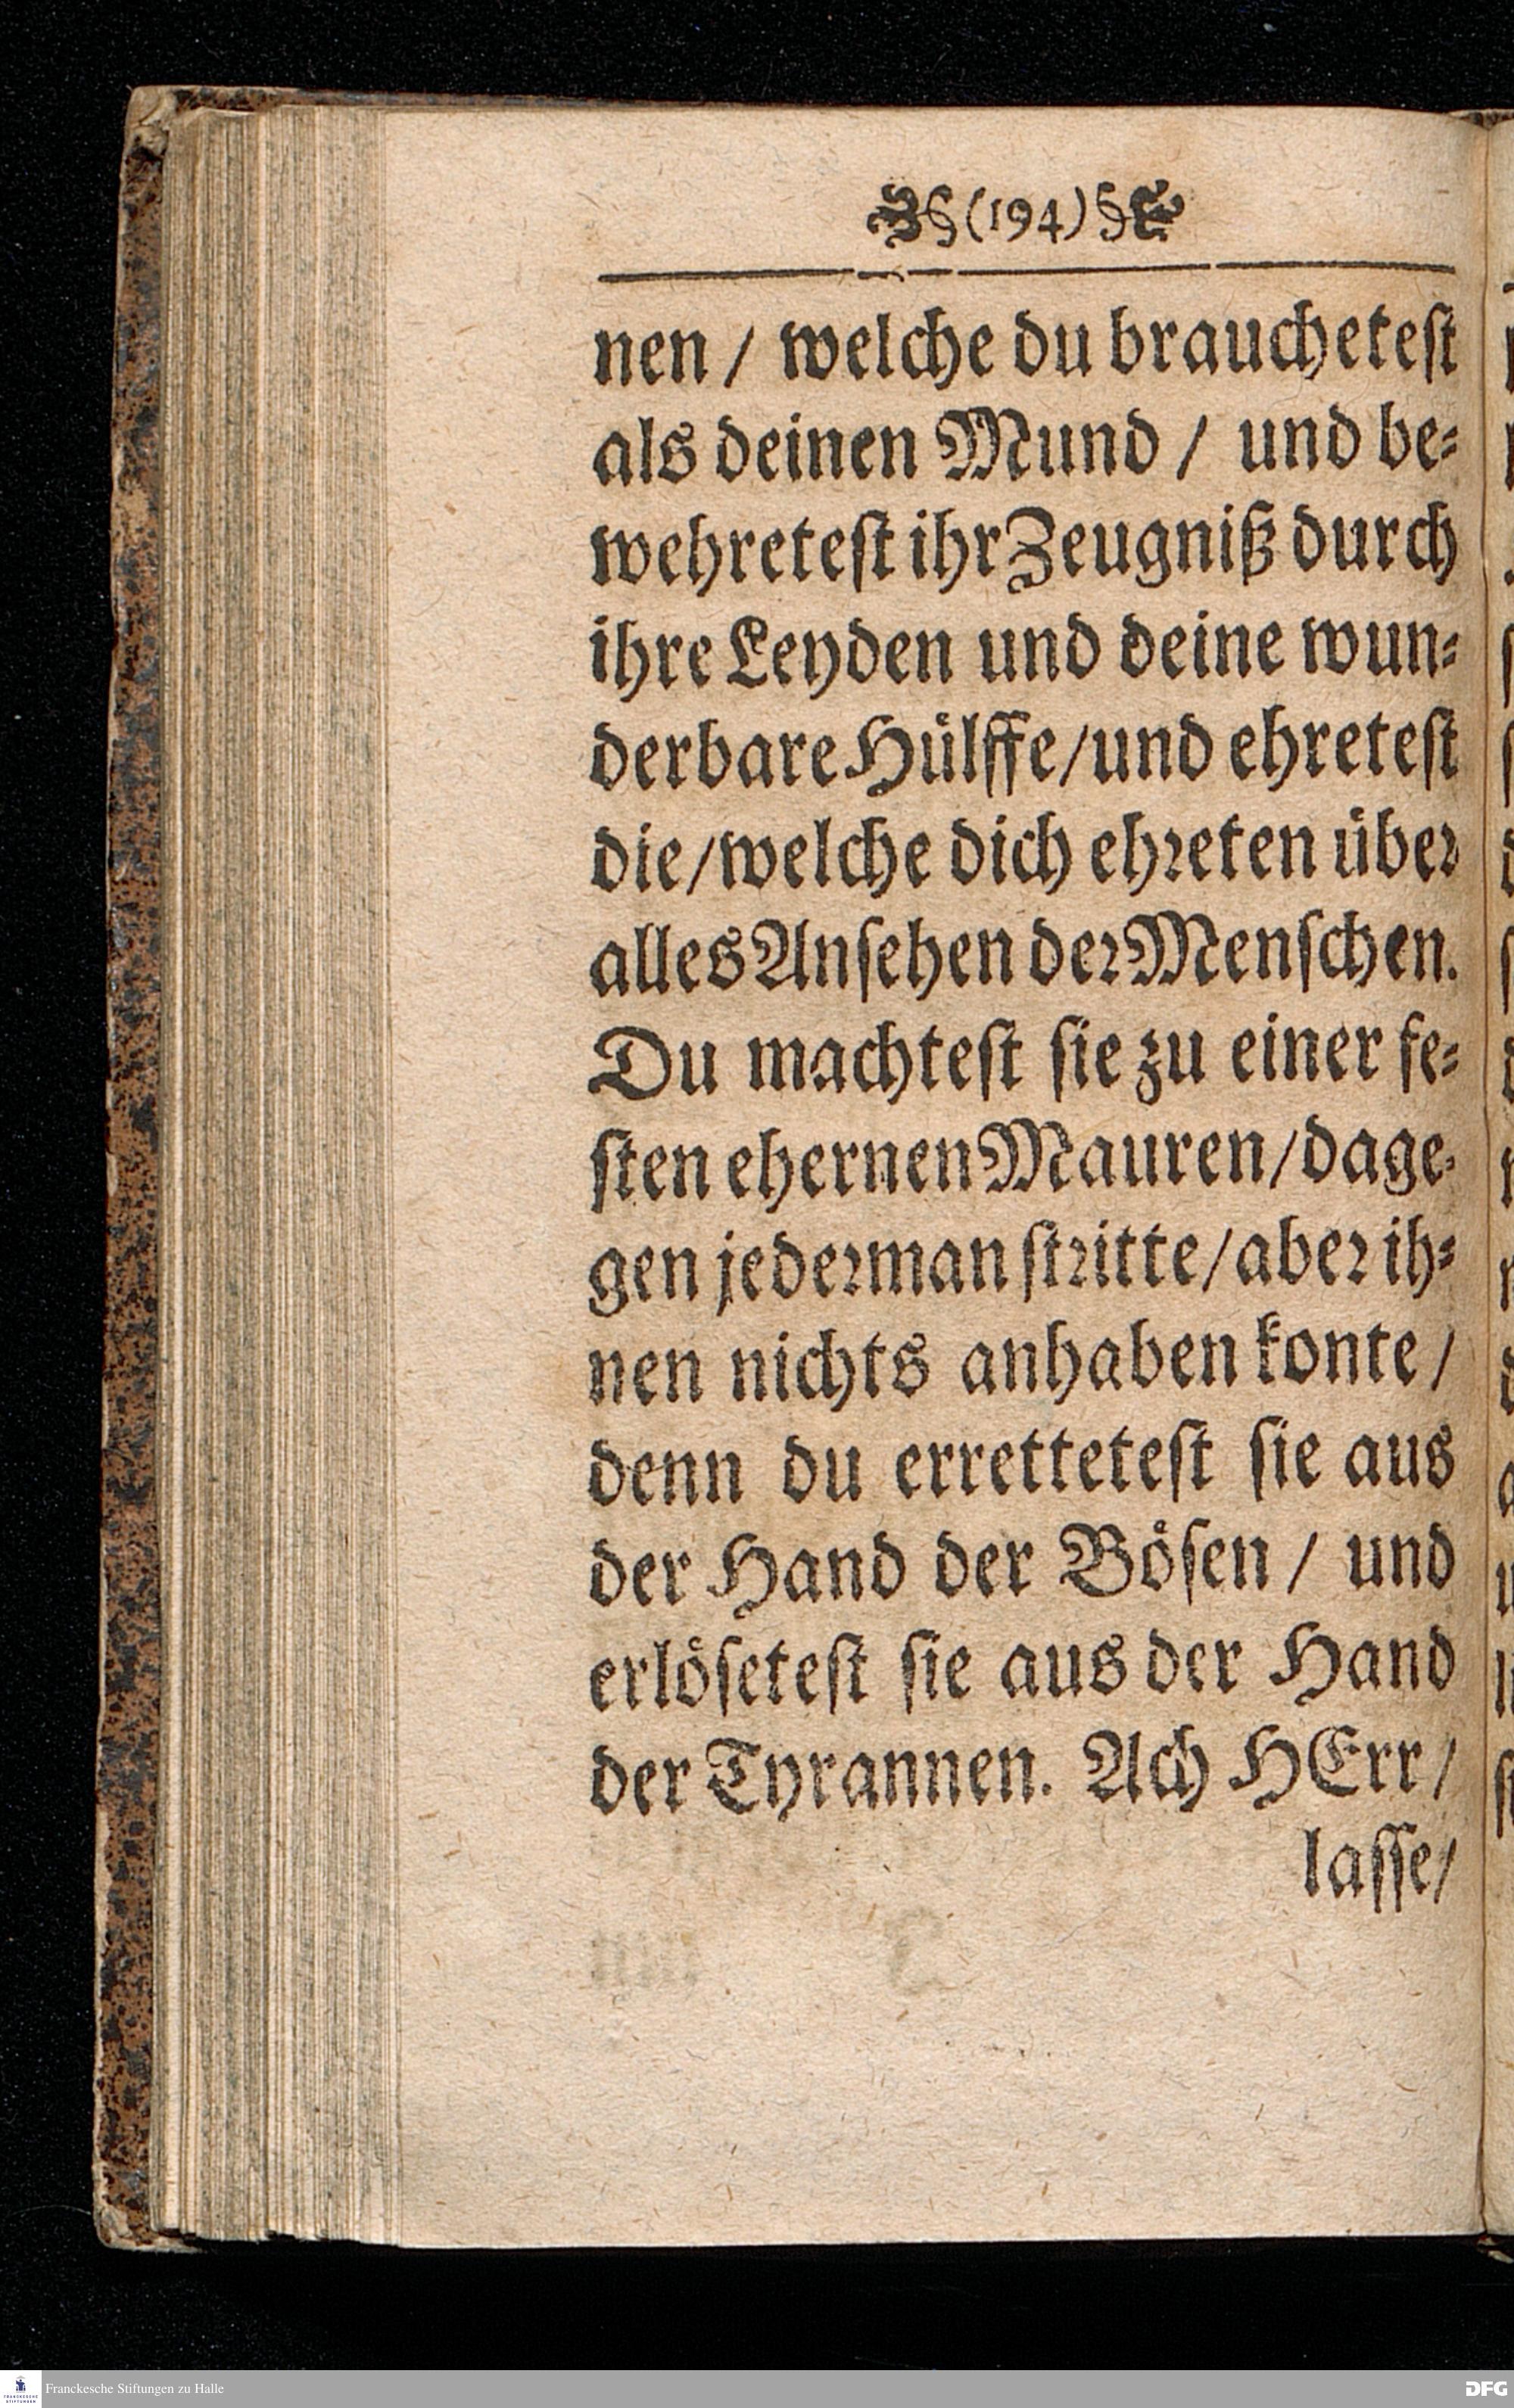 §(194)§
nen / welche du braucheteſt
als deinen Mund / und be⸗
wehreteſt ihr Zeugniß durch
ihre Leyden und deine wun⸗
derbare Huͤlffe/und ehreteſt
die/welche dich ehꝛeten uͤbeꝛ
alles Anſehen deꝛ Menſchen.
Du machteſt ſie zu einer fe⸗
ſten ehernen Mauren/dage⸗
gen jedeꝛman ſtꝛitte/abeꝛ ih⸗
nen nichts anhaben konte /
denn du erretteteſt ſie aus
der Hand der Boͤſen / und
erloͤſeteſt ſie aus der Hand
der Tyrannen. Ach HErr/
laſſe/
FRANCKESCHE STIFTUNGEN
Franckesche Stiftungen zu Halle
DFG